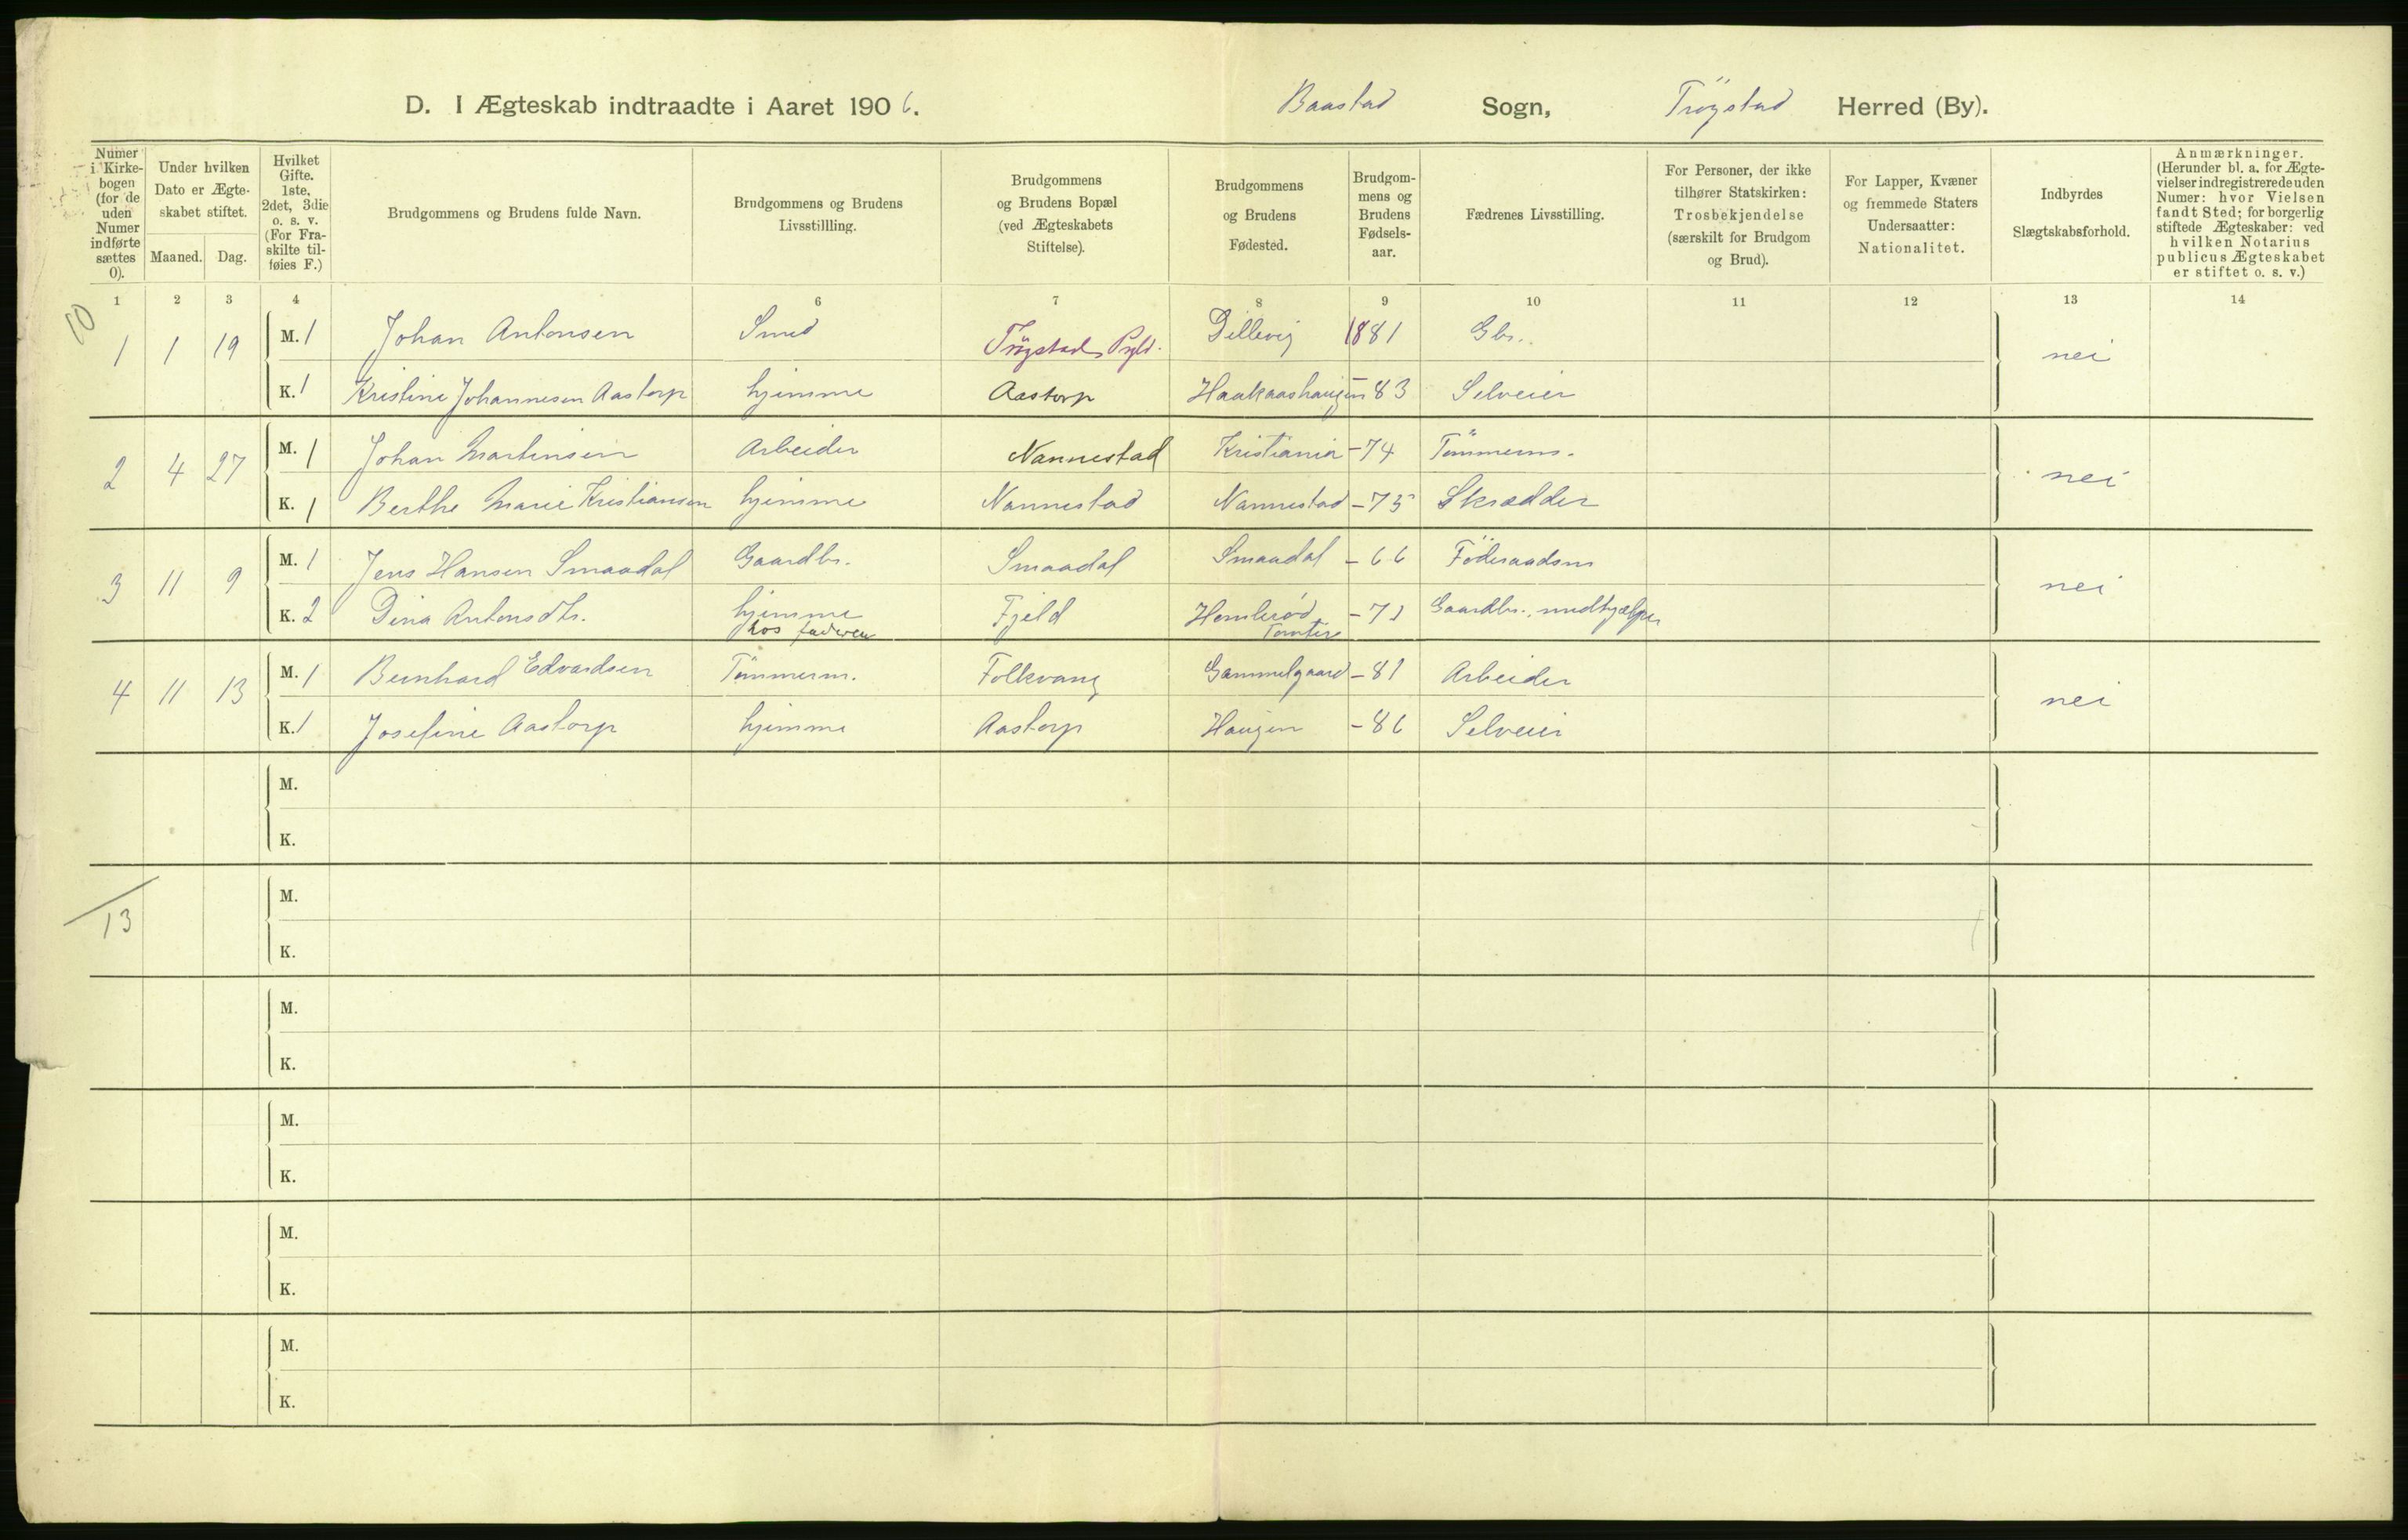 D. I Ægteskab indtraadte i Aaret 1906. Baastad Sogn, Trøgstad Herred (By).
Numer i Kirkebogen (for de uden Numer indførte sættes 0).
Under hvilken Dato er Ægteskabet stiftet.
Maaned. Dag.
Hvilket Gifte. 1ste, 2det, 3die o. s. v. (For Fraskilte tilføies F.)
Brudgommens og Brudens fulde Navn.
Brudgommens og Brudens Livsstillling.
Brudgommens og Brudens Bopæl (ved Ægteskabets Stiftelse).
Brudgommens og Brudens Fødested.
Brudgommens og Brudens Fødselsaar.
Fædrenes Livsstilling.
For Personer, der ikke tilhører Statskirken: Trosbekjendelse (særskilt for Brudgom og Brud).
For Lapper, Kvæner og fremmede Staters Undersaatter: Nationalitet.
Indbyrdes Slægtskabsforhold.
Anmærkninger. (Herunder bl. a. for Ægtevielser indregistrerede uden Numer: hvor Vielsen fandt Sted; for borgerlig stiftede Ægteskaber: ved hvilken Notarius publicus Ægteskabet er stiftet o. s. v.)
1 2 3 4 6 7 8 9 10 11 12 13 14
10
1 1 19 M. 1 Johan Antonsen Smed Trögstad Pgld. Dillevig 1881 Gbr. nei
K. 1 Kristine Johannesen Aastorp hjemme Aastorp Haakaashaugen - 83 Selveier
2 4 27 M. 1 Johan Martinsen Arbeider Nannestad Kristiania - 74 Tömmerm. nei
K. 1 Berthe Marie Kristiansen hjemme Nannestad Nannestad - 75 Skrædder
3 11 9 M. 1 Jens Hansen Smaadal Gaardbr. Smaadal Smaadal - 66 Föderaadsm nei
K. 2 Dina Antonsdtr. hjemme Fjeld - 71 Gaardbr.,
hos faderen
4 11 13 M. 1 Bernhard Edvardsen Tömmerm. Folkvang Gammelgaard - 81 Arbeider nei
K. 1 Josefine Aastorp hjemme Aastorp Haugen - 86 Selveier
M.
K.
M.
13
K.
M.
K.
M.
K.
M.
K.
M.
K.